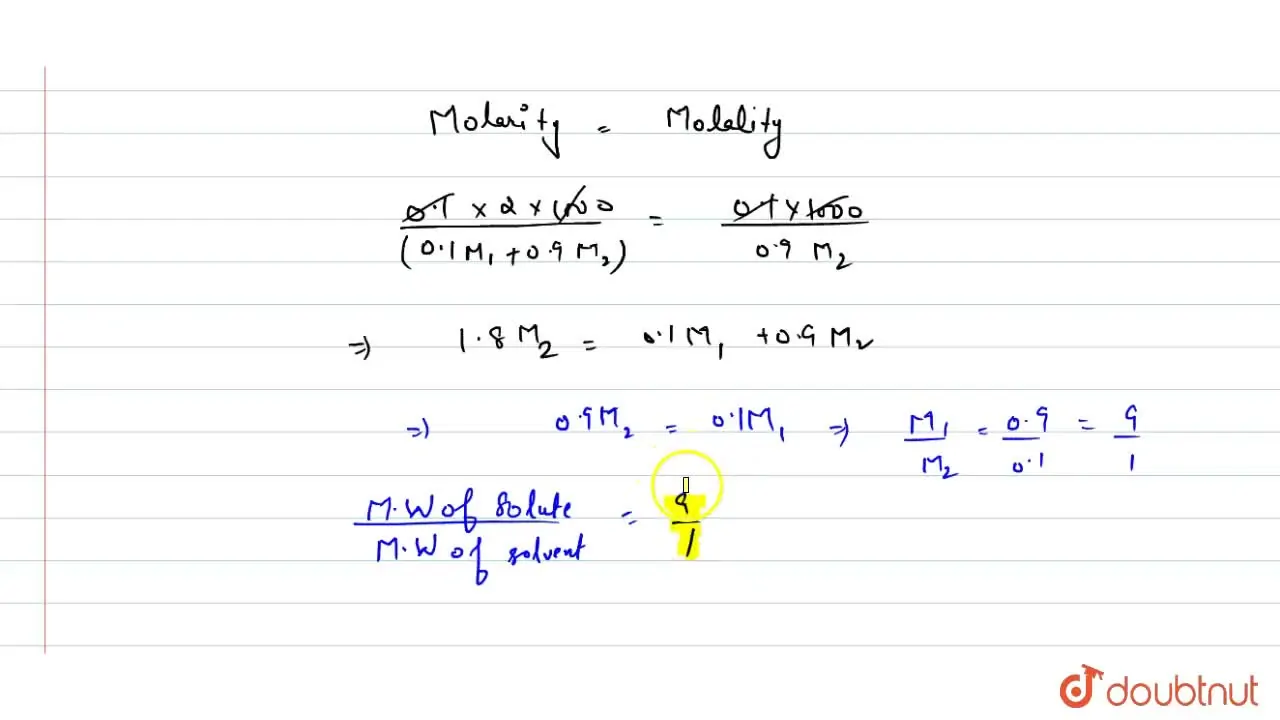 Molarity = Molality
0.1 x 2 x 1000 / (0.1 M₁ + 0.9 M₂) = 0.1 x 1000 / 0.9 M₂
⇒ 1.8 M₂ = 0.1 M₁ + 0.9 M₂
⇒ 0.9 M₂ = 0.1 M₁ ⇒ M₁ / M₂ = 0.9 / 0.1 = 9 / 1
M.W of Solute / M.W of solvent = 9 / 1
doubtnut